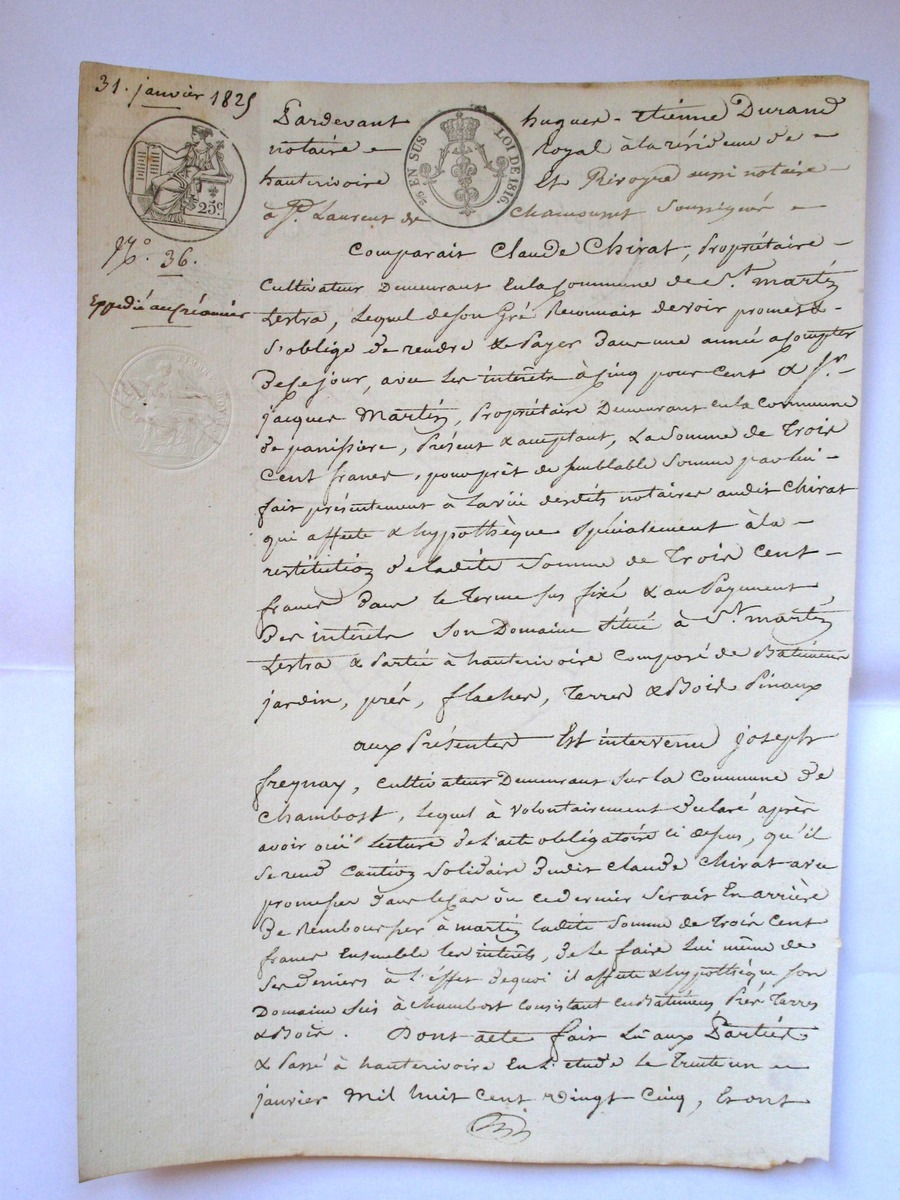 31. janvier 1825
Pardevant hugues-etiénne Durand
notaire royal à la résidence de
hauterivoire Et Rivoyre aussi notaire
à St. Laurent de Chamousset Soussignés
25c
EN SUS LOI DE 1816
N.° 36.
Expédié au créancier
Comparait Claude Chirat, Propriétaire
Cultivateur Demeurant En la Commune de St. martin
Lestra, Lequel de son Gré Reconnait devoir promet &
S'oblige de rendre & Payer dans une année a Compter
de Ce jour, avec Les intérêts à Cinq pour Cent à Sr.
jacques Martin, Propriétaire Demeurant en la Commune
de panissière, Présent & acceptant, La Somme de Trois
Cent francs, pour prêt de semblable Somme par lui
fait présentement à La vüe desdits notaires audit Chirat
qui affecte & hypothèque Spécialement à la
restitution de ladite Somme de Trois Cent
francs dans le Terme sus fixé & au Payement
Des intérêts Son Domaine Situé à St. martin
Lestra & Partie à hauterivoire Composé de Bâtiments
jardin, prés, flaches, Terres & Bois Pinaux
aux Présentes Est intervenu joseph
freynay, Cultivateur Demeurant Sur la Commune de
Chambost, Lequel à Volontairement déclaré après
avoir oüi Lecture de L'acte obligatoire Ci dessus, qu'il
Se rend Caution Solidaire dudit Claude Chirat avec
promesse dans le Cas où ce dernier Serait En arrière
de Rembourser à martin ladite Somme de Trois Cent
francs Ensemble les intérêts, de Le faire Lui même de
Ses deniers à L'éffet de quoi il affecte & hypothèque son
Domaine Sis à Chambost Consistant en Batiments, Prés Terres
& Bois. Dont acte fait Lû aux Parties
& Passé à hauterivoire En L'etude Le Trente un
janvier Mil huit Cent Vingt Cinq, Et ont